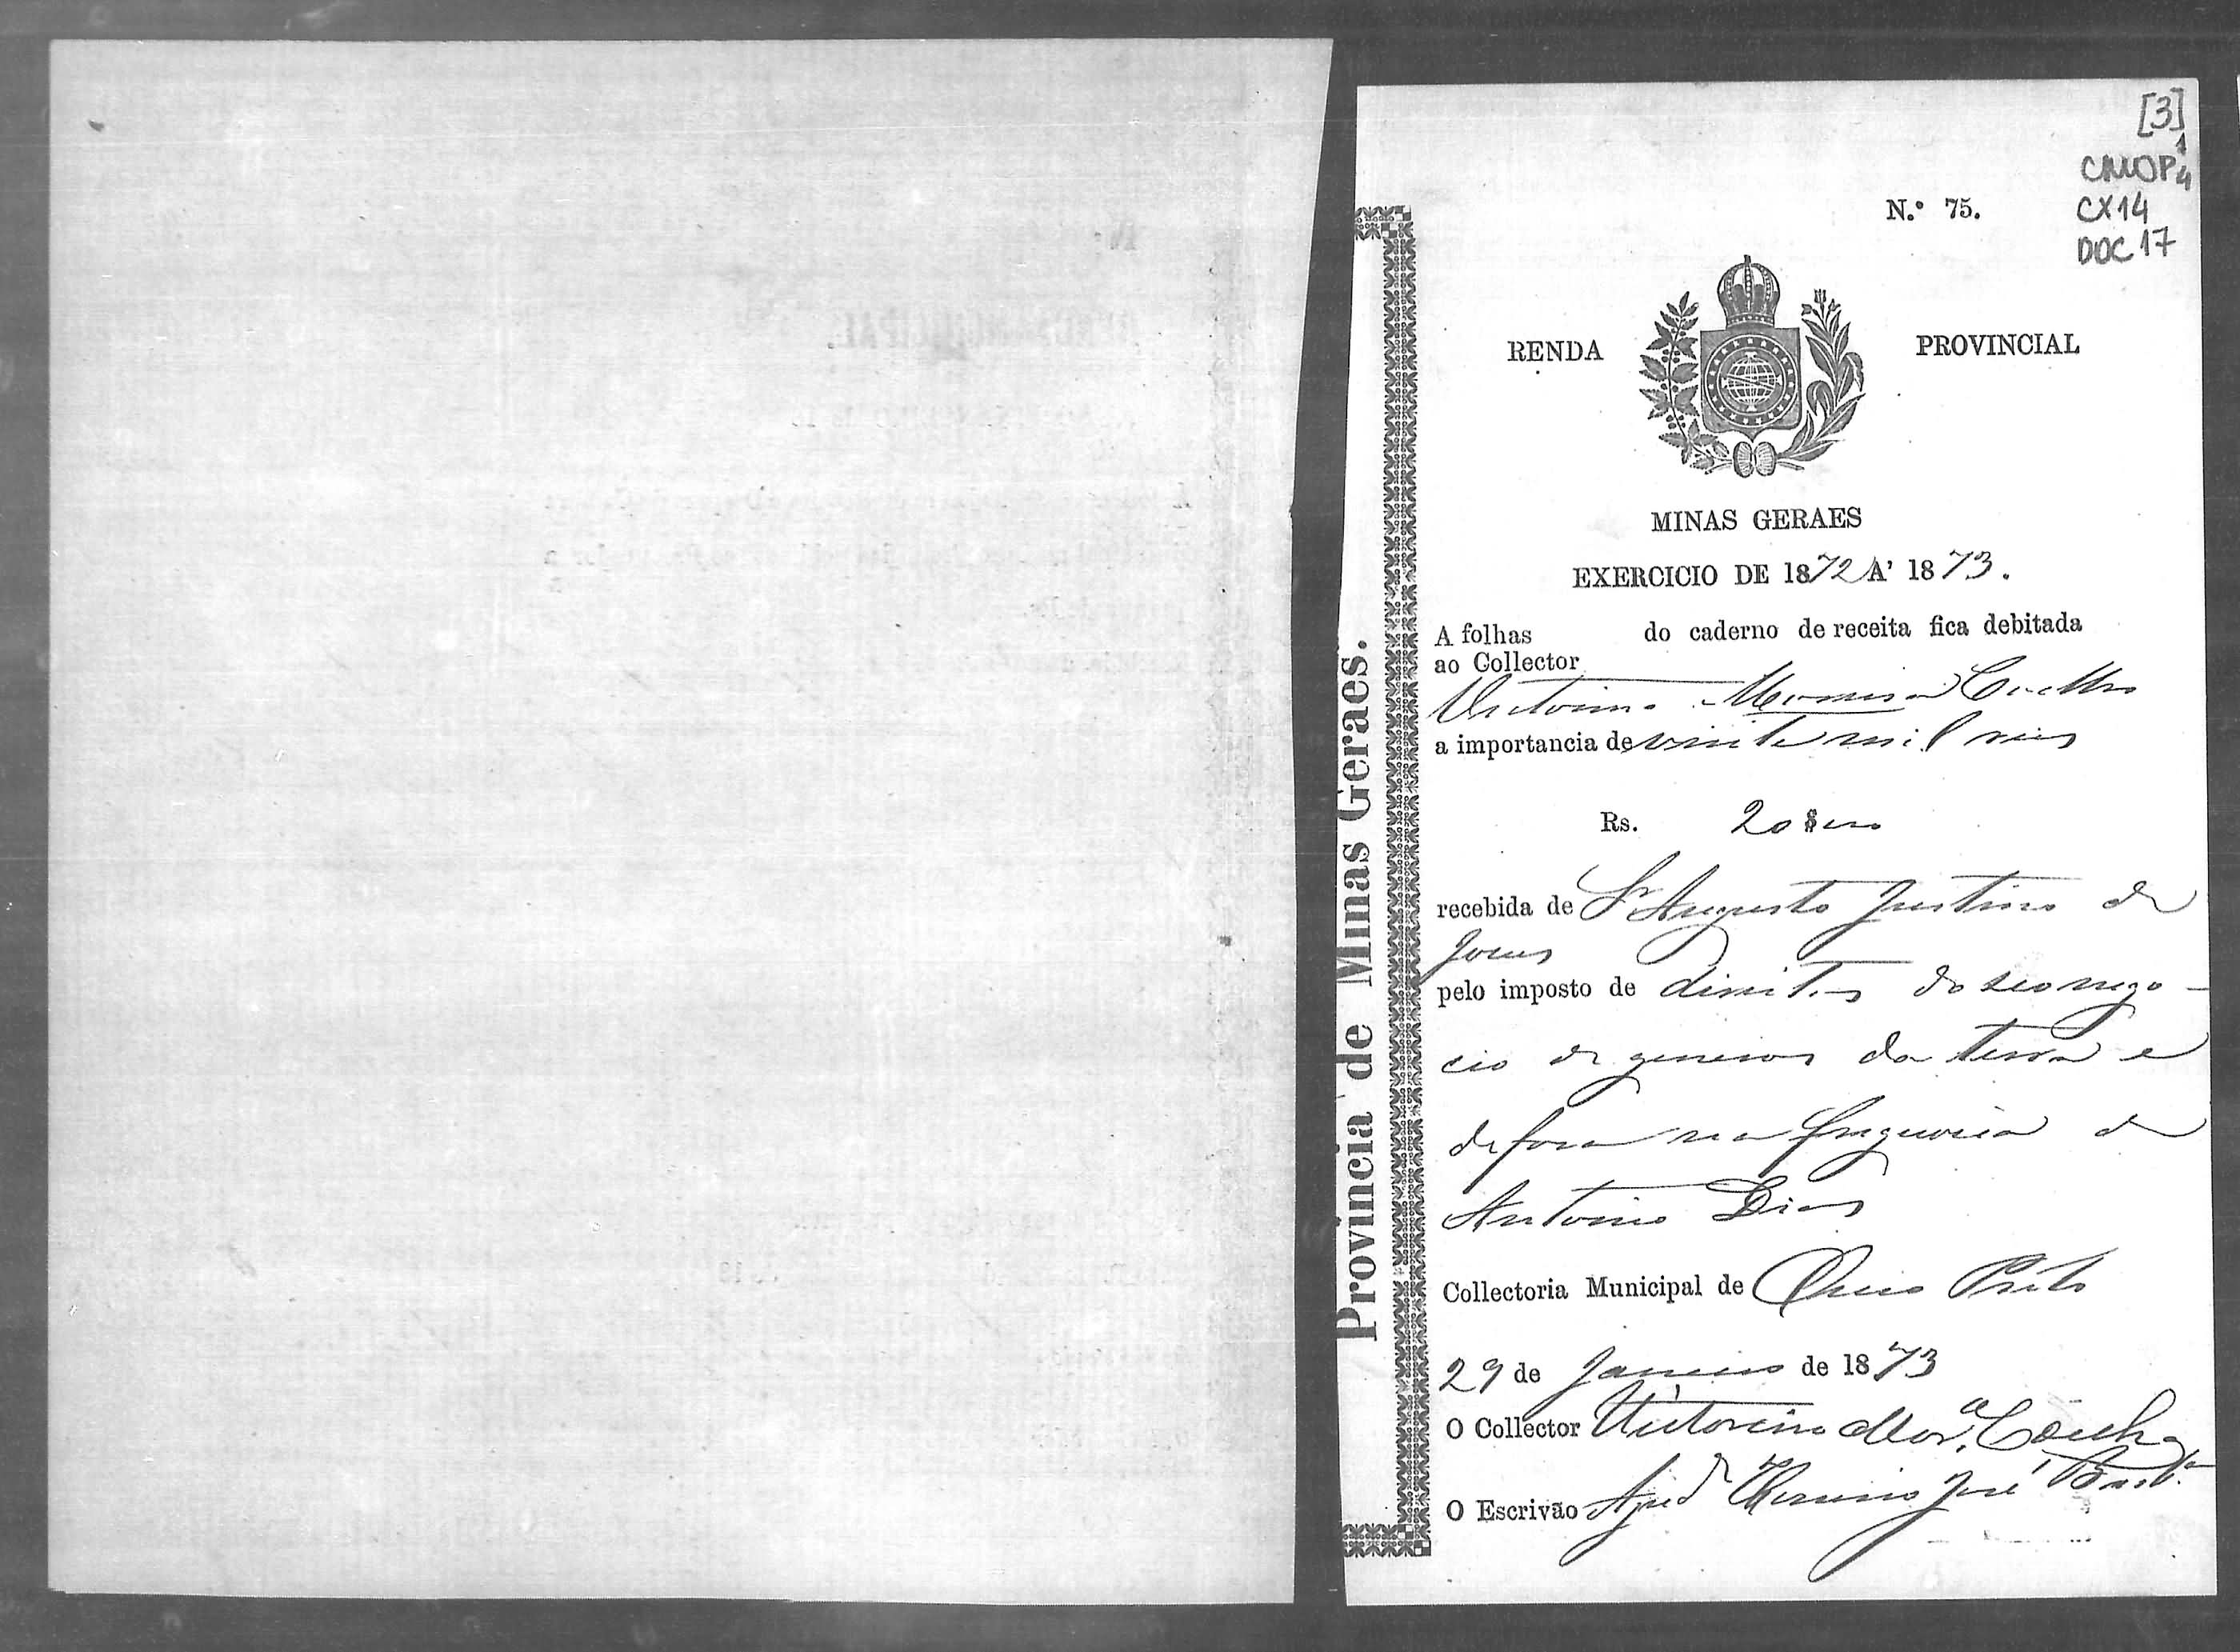 [3]
1
CMOP 4
CX14
DOC 17
N.º 75.
RENDA PROVINCIAL
MINAS GERAES
EXERCICIO DE 1872 A' 1873.
A folhas do caderno de receita fica debitada
ao Collector
Victorino Moreira Coelho
a importancia de vinte mil reis
Rs. 20$
recebida de Sr Augusto Justino de
pelo imposto de direitos do seo nego-
cio de generos da terra e
de fora na freguesia de
Antonio Dias
Collectoria Municipal de Ouro Preto
29 de Janeiro de 1873
O Collector Victorino Mor.a Coelho
O Escrivão Ajud José
Provincia de Minas Geraes.